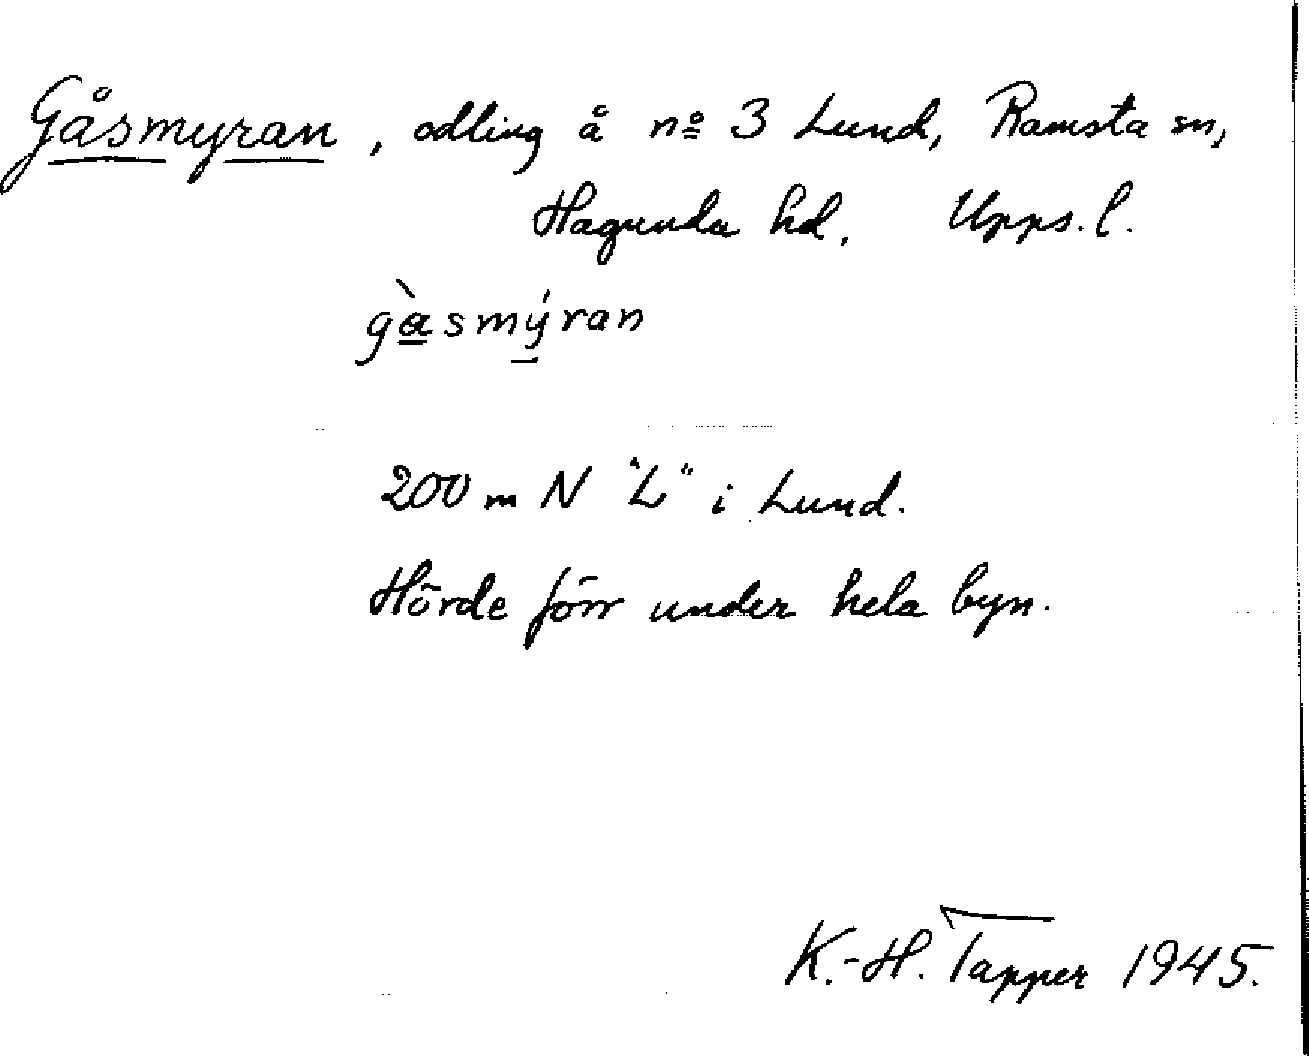 Gåsmyran, odling å nº 3 Lund, Ramsta sn,
Hagunda hd. Upps. l.
gàsmýran
200 m N "L" i Lund.
Hörde förr under hela byn.
K.-H. Tapper 1945.